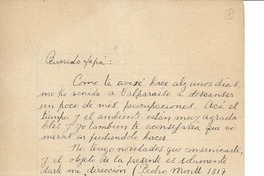 Querido papá:
Como te avisé hace algunos días,
me he venido a Valparaíso a descansar
un poco de mis preocupaciones. Acá el
tiempo y el ambiente están muy agrada-
bles y yo tambien te aconsejaría que vi-
nieras si pudiendolo haces.
No tengo novedades que comunicarte,
y el objeto de la presente es solamente
darte mi dirección (Pedro Montt 1817